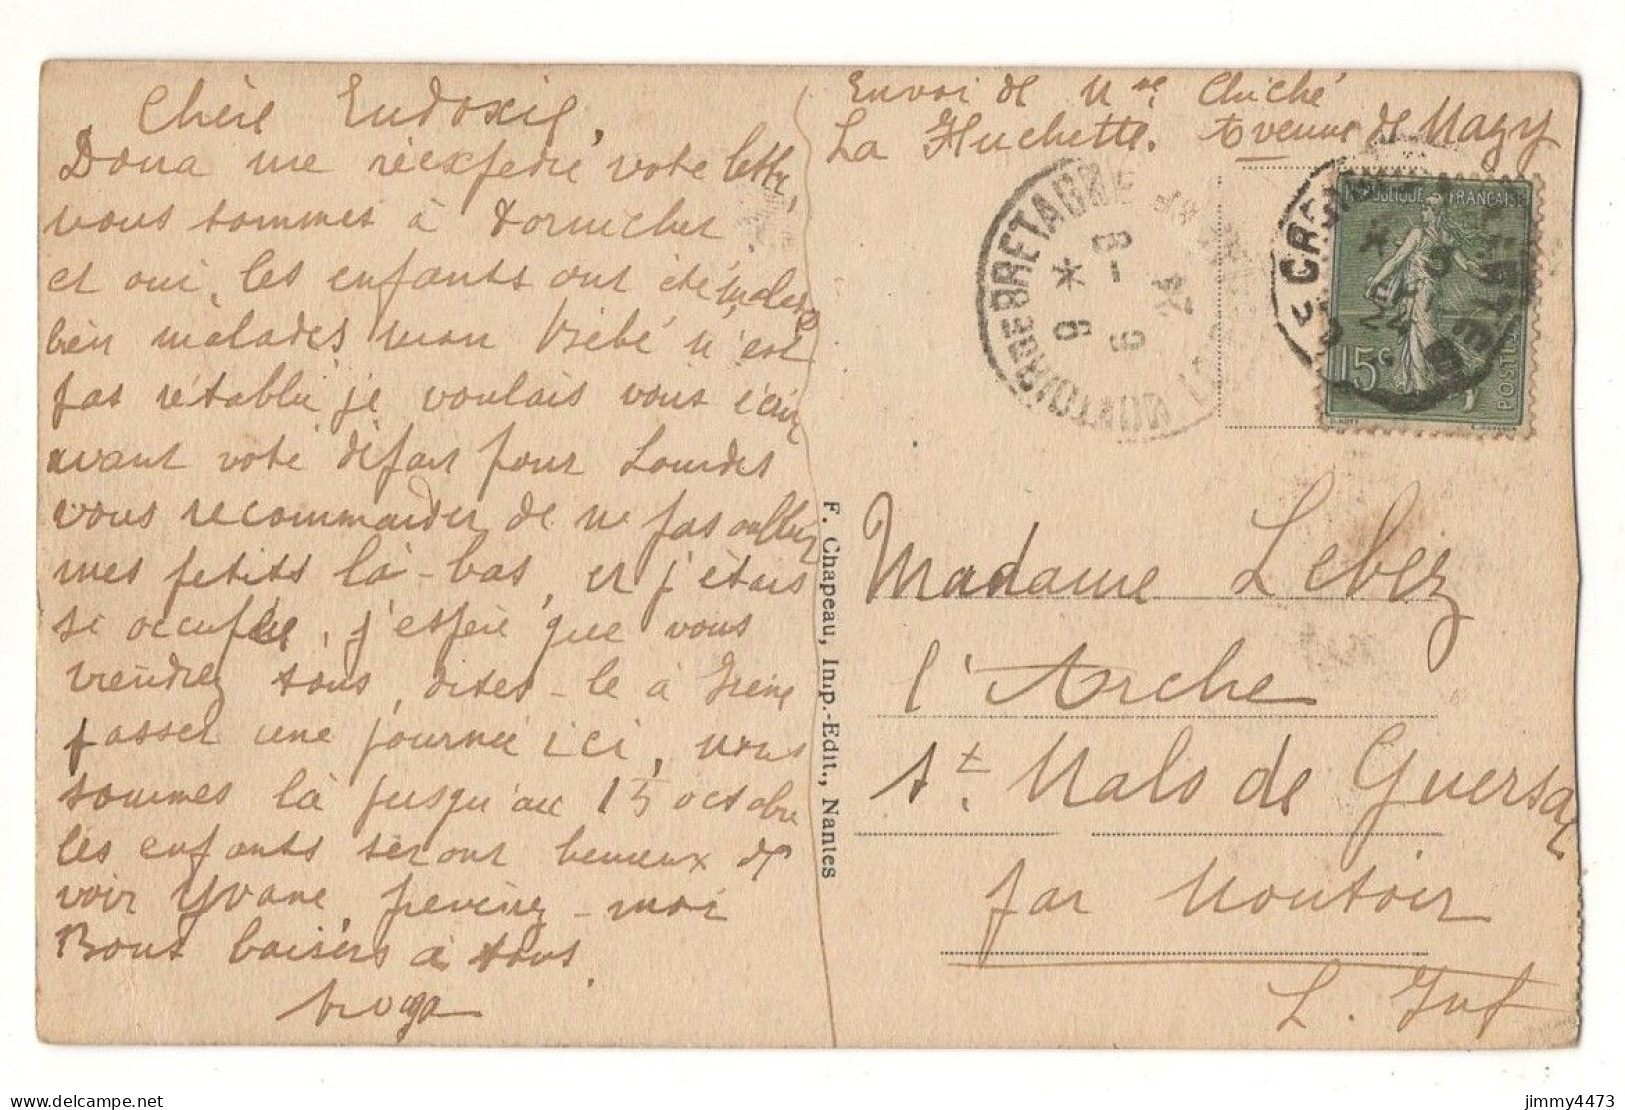 Chère Eudoxie,
Doua me réexpedie vote lettre,
nous sommes à Pornichet
et oui, les enfants ont été malades
bien malades mon Bébé n'est
pas rétabli je voulais vous écrire
avant vote départ pour Lourdes
vous recommander de ne pas oublier
mes petits là-bas, et j'étais
si occupée, j'espère que vous
viendrez tous, dites-le à Irène
passer une journée ici, nous
sommes là jusqu'au 15 octobre
les enfants seront heureux de
voir Yvane, prévenez-moi
Bons baisers à tous.
Envoi de Mme Cliché
La Huchette. Avenue de Mazy
MONTOIR DE BRETAGNE
8 - 9
24
6
REPUBLIQUE FRANCAISE
15c
POSTES
F. Chapeau, Imp.-Edit., Nantes
Madame Lebez
l'Arche
St. Malo de Guersac
par Montoir
L. Inf
jimmy4473